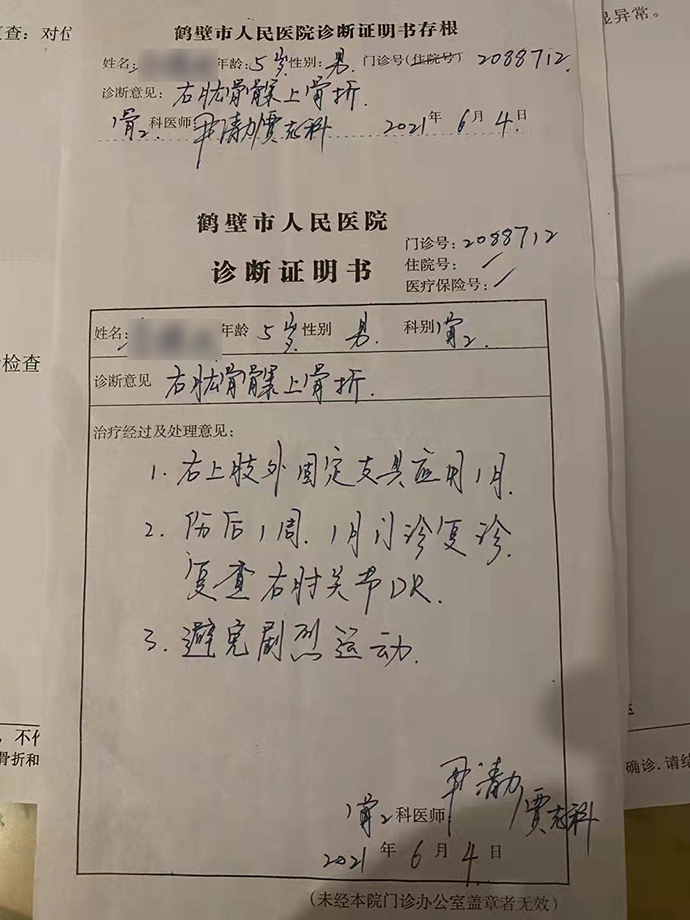 复查：对位
显异常。
鹤壁市人民医院诊断证明书存根
姓名： 年龄：5岁 性别：男 门诊号(住院号) 2088712
诊断意见：右肱骨髁上骨折.
骨2科医师 贾志科 2021年6月4日
鹤壁市人民医院
诊断证明书
门诊号：2088712
住院号：
医疗保险号：
姓名： 年龄 5岁 性别 男. 科别 骨2.
检查
诊断意见 右肱骨髁上骨折.
治疗经过及处理意见：
1. 右上肢外固定支具应用1月.
2. 伤后1周、1月门诊复诊.
复查右肘关节DR.
3. 避免剧烈运动.
骨折和
确诊.请结
骨2科医师 贾志科
2021年6月4日
(未经本院门诊办公室盖章者无效)